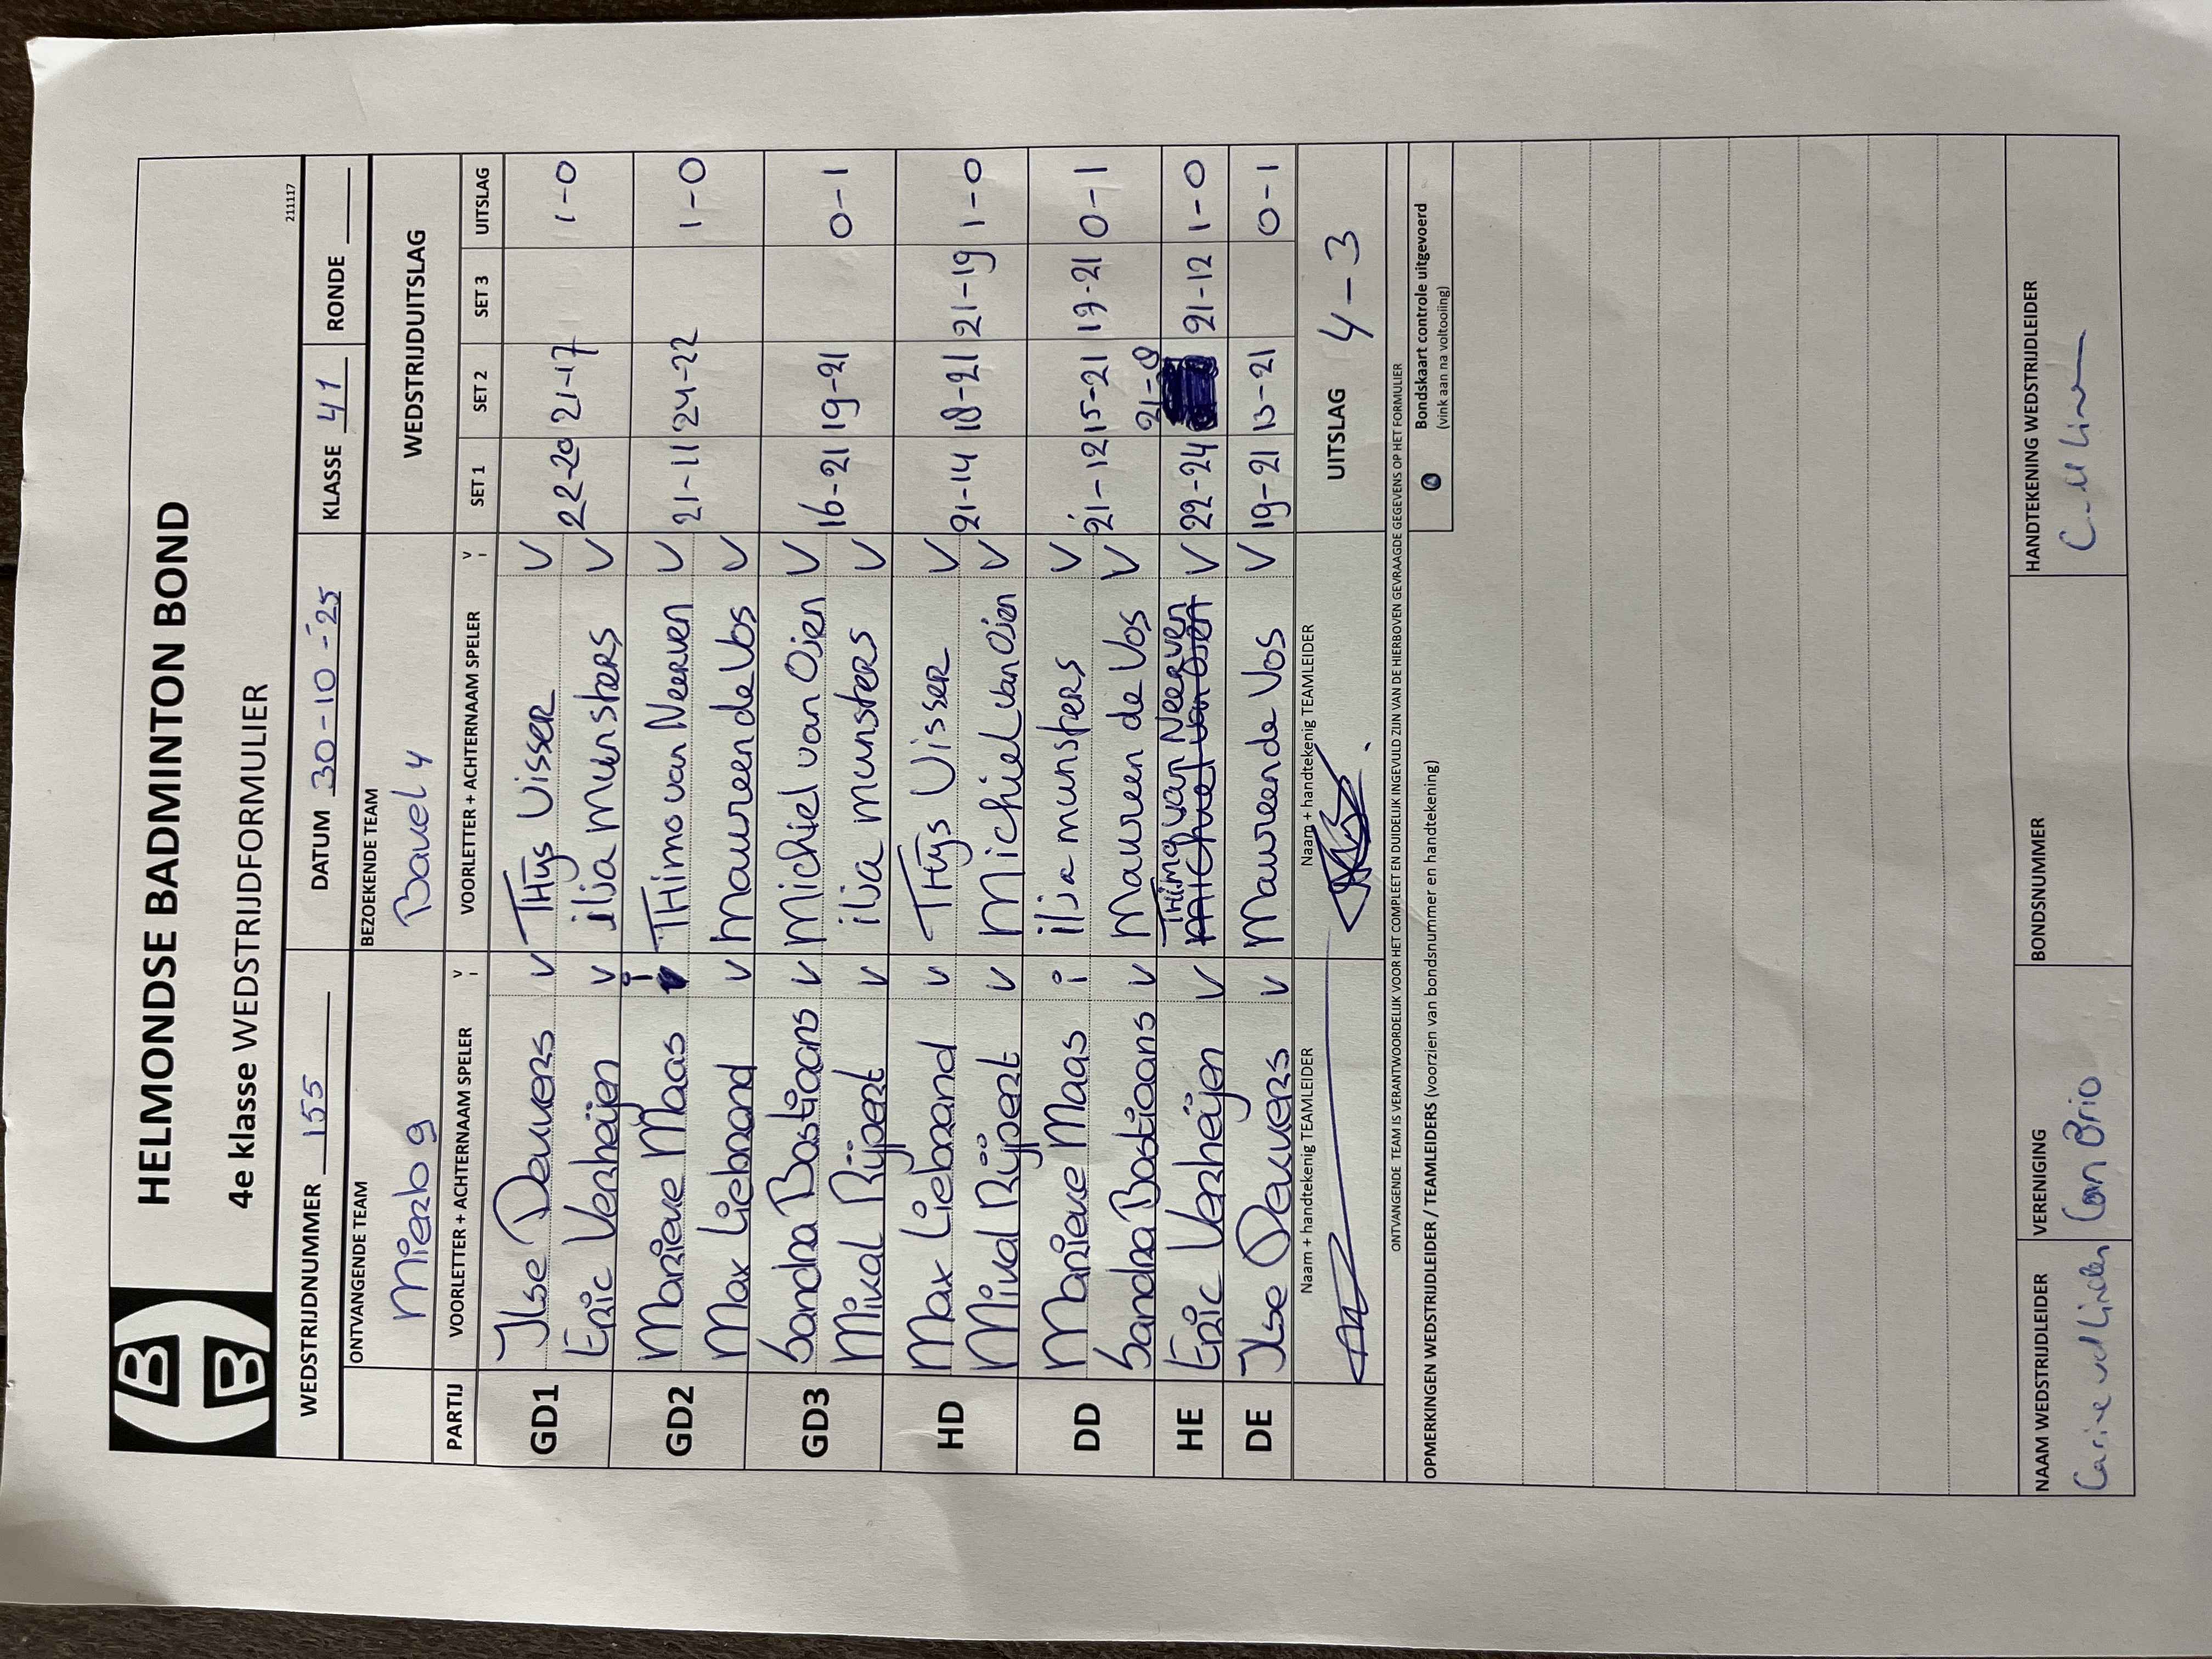 HELMONDSE BADMINTON BOND
4e klasse WEDSTRIJDFORMULIER
211117
WEDSTRIJDNUMMER 155 DATUM 30-10-25 KLASSE 41 RONDE
ONTVANGENDE TEAM BEZOEKENDE TEAM WEDSTRIJDUITSLAG
Mierlo 9 Bavel 4
PARTIJ VOORLETTER + ACHTERNAAM SPELER V I VOORLETTER + ACHTERNAAM SPELER V I SET 1 SET 2 SET 3 UITSLAG
GD1 Ilse Deuvers V THijs Visser V 22-20 21-17 1-0
Eric Verheijen V ilja munsters V
GD2 Marieke Maas i THimo van Neerven V 21-11 24-22 1-0
Max Liebrand V Maureen de Vos V
GD3 Sandra Bastiaans V Michiel van Osen V 16-21 19-21 0-1
Mikal Rijpert V ilja munsters V
HD Max Liebrand V THijs Visser V 21-14 18-21 21-19 1-0
Mikal Rijpert V Michiel van Osen V
DD Marieke Maas i ilja munsters V 21-12 15-21 19-21 0-1
Sandra Bastiaans V Maureen de Vos V
HE Eric Verheijen V THimo van Neerven V 22-24 21-9 21-12 1-0
Michiel van Osen
DE Ilse Deuvers V Maureen de Vos V 19-21 13-21 0-1
Naam + handtekenig TEAMLEIDER Naam + handtekenig TEAMLEIDER UITSLAG 4-3
ONTVANGENDE TEAM IS VERANTWOORDELIJK VOOR HET COMPLEET EN DUIDELIJK INGEVULD ZIJN VAN DE HIERBOVEN GEVRAAGDE GEGEVENS OP HET FORMULIER
OPMERKINGEN WEDSTRIJDLEIDER / TEAMLEIDERS (voorzien van bondsnummer en handtekening)
Bondskaart controle uitgevoerd
(vink aan na voltooiing)
NAAM WEDSTRIJDLEIDER VERENIGING BONDSNUMMER HANDTEKENING WEDSTRIJDLEIDER
Carine vd Linden Con Brio